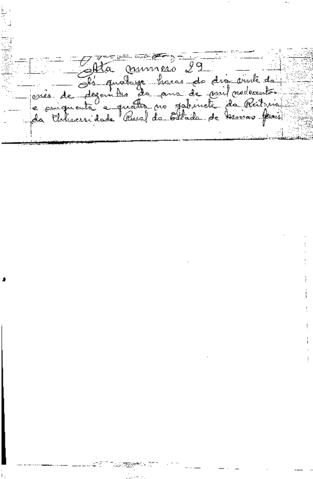 Ata numero 29
Às quatorze horas do dia vinte do
mês de dezembro do ano de mil novecentos
e cinquenta e quatro no gabinete da Reitoria
da Universidade Rural do Estado de Minas Gerais